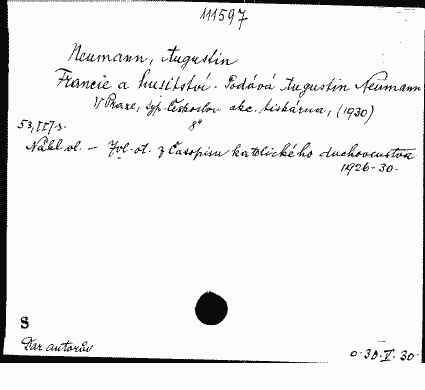 111597
Neumann, Augustin
Francie a husitství. Podává Augustin Neumann
V Praze, typ. Českoslov. akc. tiskárna, (1930)
53, III s. 8°
Nákl. vl. – Zvl. ot. z Časopisu katolického duchovenstva
1926-30.
S
Dar autorův
o. 30.V.30.